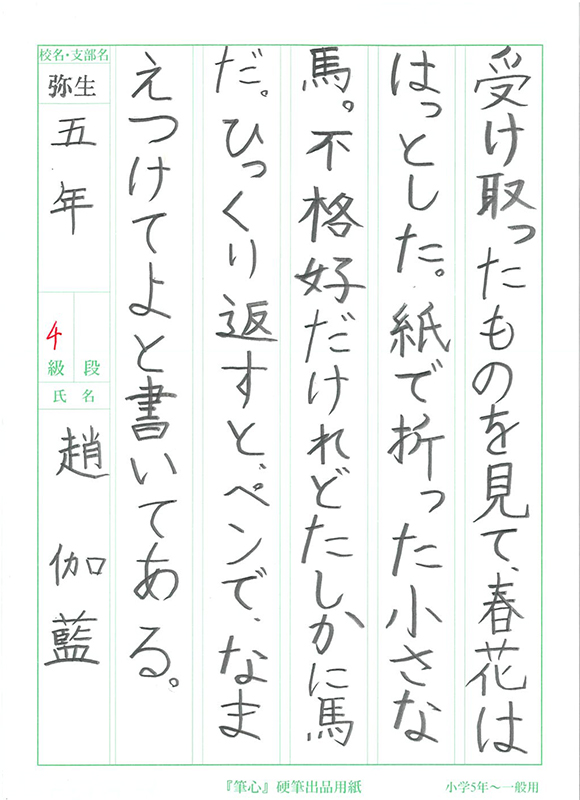 受け取ったものを見て、春花は
はっとした。紙で折った小さな
馬。不格好だけれどたしかに馬
だ。ひっくり返すと、ペンで、なま
えつけてよと書いてある。
校名・支部名
弥生
五年
4
級 段
氏 名
趙 伽藍
『筆心』硬筆出品用紙
小学5年～一般用